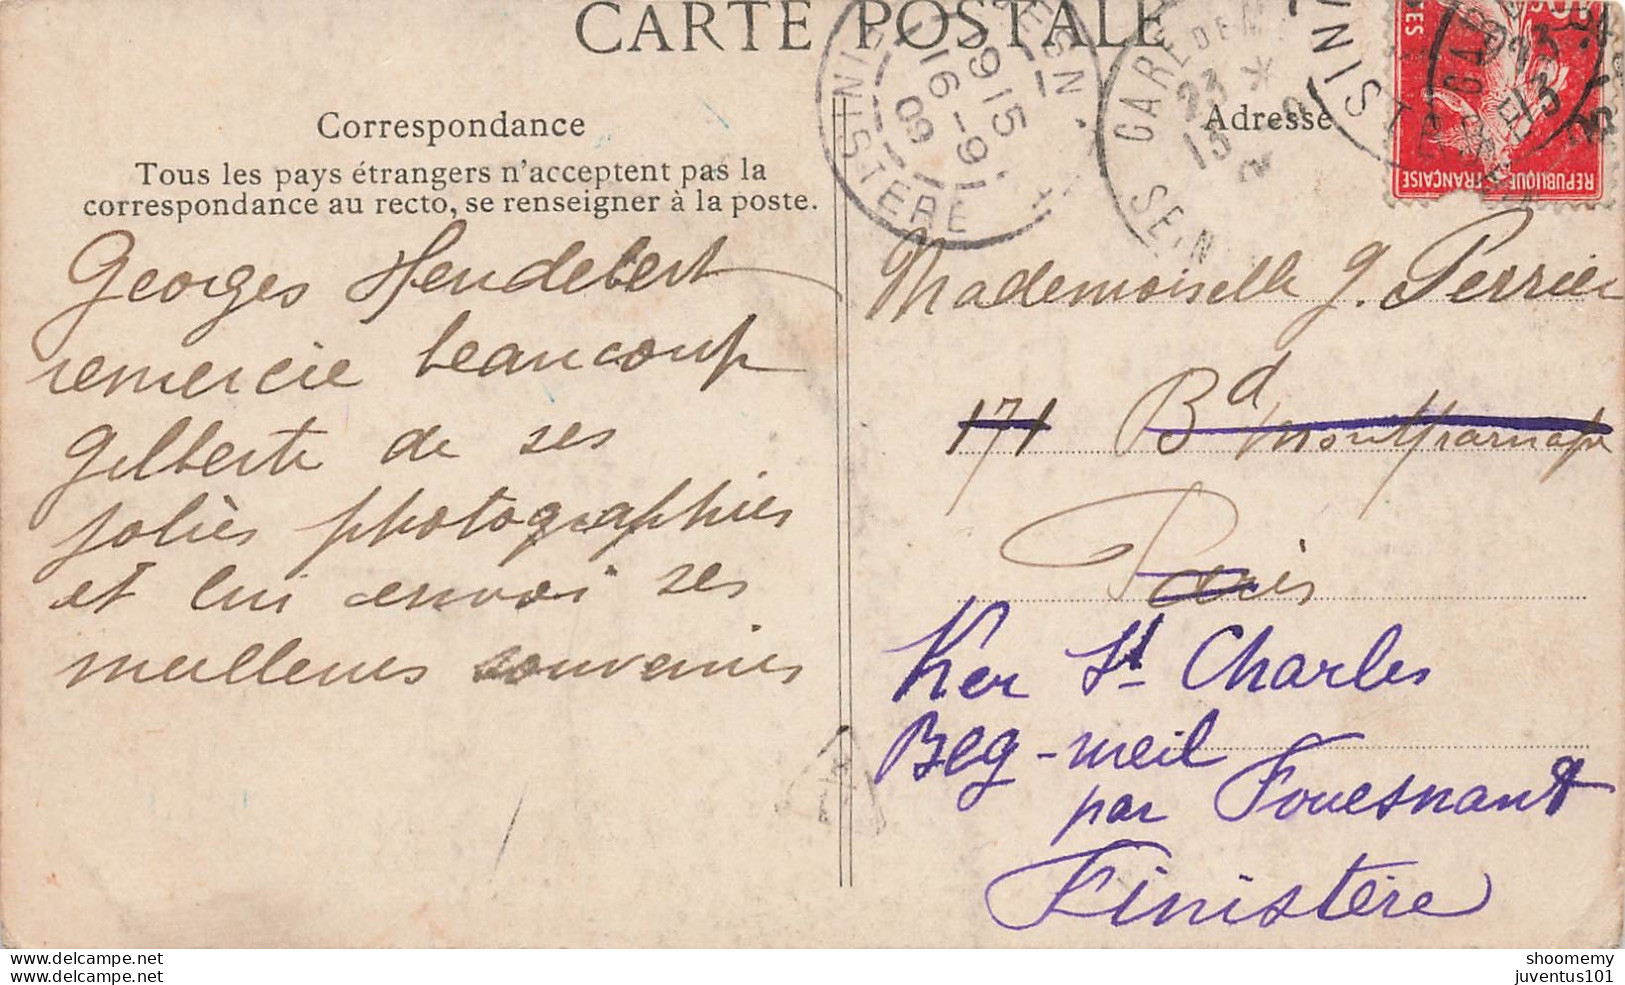 CARTE POSTALE
Correspondance
Tous les pays étrangers n'acceptent pas la
correspondance au recto, se renseigner à la poste.
Georges Heudebert
remercie beaucoup
Gilberte de ses
jolies photographies
et lui envoi ses
meilleurs souvenirs
Adresse
Mademoiselle G. Perrier
171 Bd Montparnasse
Paris
Ker St Charles
Beg-meil
par Fouesnant
Finistère
915
16-9
09
FINISTERE
GARE DE
23
13
SEIN
REPUBLIQUE FRANÇAISE
www.delcampe.net
laurent128
shoomemy
juventus101